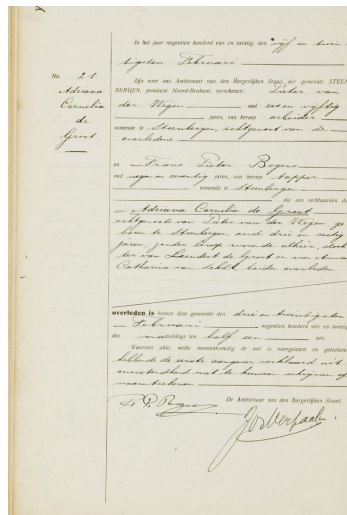 In het jaar negentien honderd vier en twintig, den vijf en twin-
tigsten Februari
Zijn voor ons Ambtenaar van den Burgerlijken Stand der gemeente STEEN-
BERGEN, provincie Noord-Brabant, verschenen: Pieter van
der Wegen oud zes en vijftig
jaren, van beroep arbeider
wonende te Steenbergen, echtgenoot van de
overledene
en Frans Pieter Bogers
oud negen en zeventig jaren, van beroep tapper
wonende te Steenbergen
die ons verklaarden dat
Adriana Cornelia de Groot
echtgenoote van Pieter van der Wegen ge-
boren te Steenbergen, oud drie en zestig
jaren, zonder beroep wonende alhier, doch-
ter van Leendert de Groot en van
Catharina van beiden overleden
overleden is binnen deze gemeente den drie en twintigsten
Februari negentien honderd vier en twintig
des namiddags ten half een ure.
Waarvan akte, welke overeenkomstig de wet is voorgelezen en geteekend
hebbende de eerste aangever verklaard uit
onervarendheid niet te kunnen schrijven of
naamteekenen
De Ambtenaar van den Burgerlijken Stand,
No. 21.
Adriana
Cornelia
de
Groot